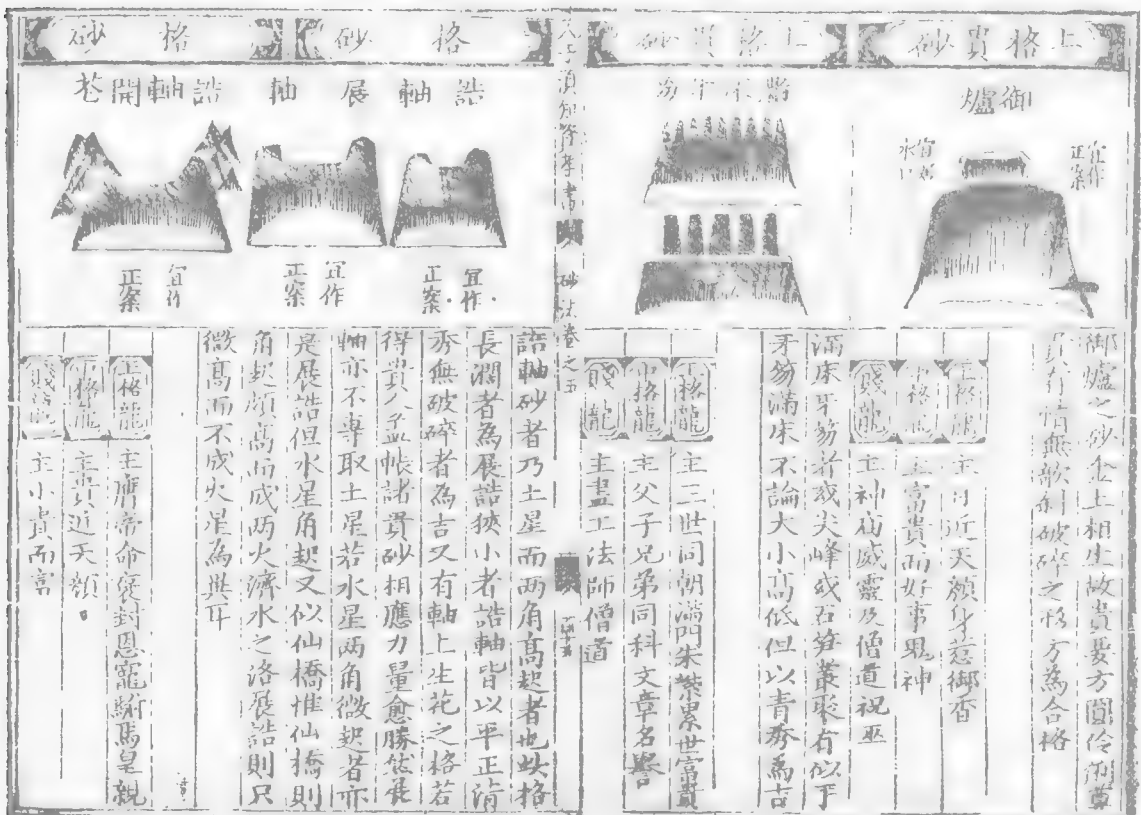 上格貴砂
御爐
宜作
正案
宜居
水口
御爐之砂金土相生故貴要方圓伶俐尊
有情無欹斜破碎之形方為合格
上格龍
主日近天顏身惹御香
中格龍
主富貴而好事鬼神
賤龍
主神廟威靈及僧道祝巫
上格貴砂
滿床牙笏
滿床牙笏者或尖峰或石笋叢聚有似乎
牙笏滿床不論大小高低但以青秀為吉
上格龍
主三世同朝滿門朱紫累世富貴
中格龍
主父子兄弟同科文章名譽
賤龍
主畫工法師僧道
人子須知資孝書
砂法卷之五
格砂
誥軸
展軸
宜作
正案
宜作
正案
誥軸砂者乃土星而兩角高起者也此格
長濶者為展誥狹小者誥軸皆以平正清
秀無破碎者為吉又有軸上生花之格若
得貴人盖帳諸貴砂相應力量愈勝然展
軸亦不專取土星若水星兩角微起者亦
是展誥但水星角起又似仙橋惟仙橋則
角起頗高而成兩火濟水之洛展誥則只
微高而不成火星為異耳
格砂
誥軸開花
宜作
正案
上格龍
主膺帝命褒封恩寵駙馬皇親
中格龍
主貴近天顏
賤龍
主小貴而富